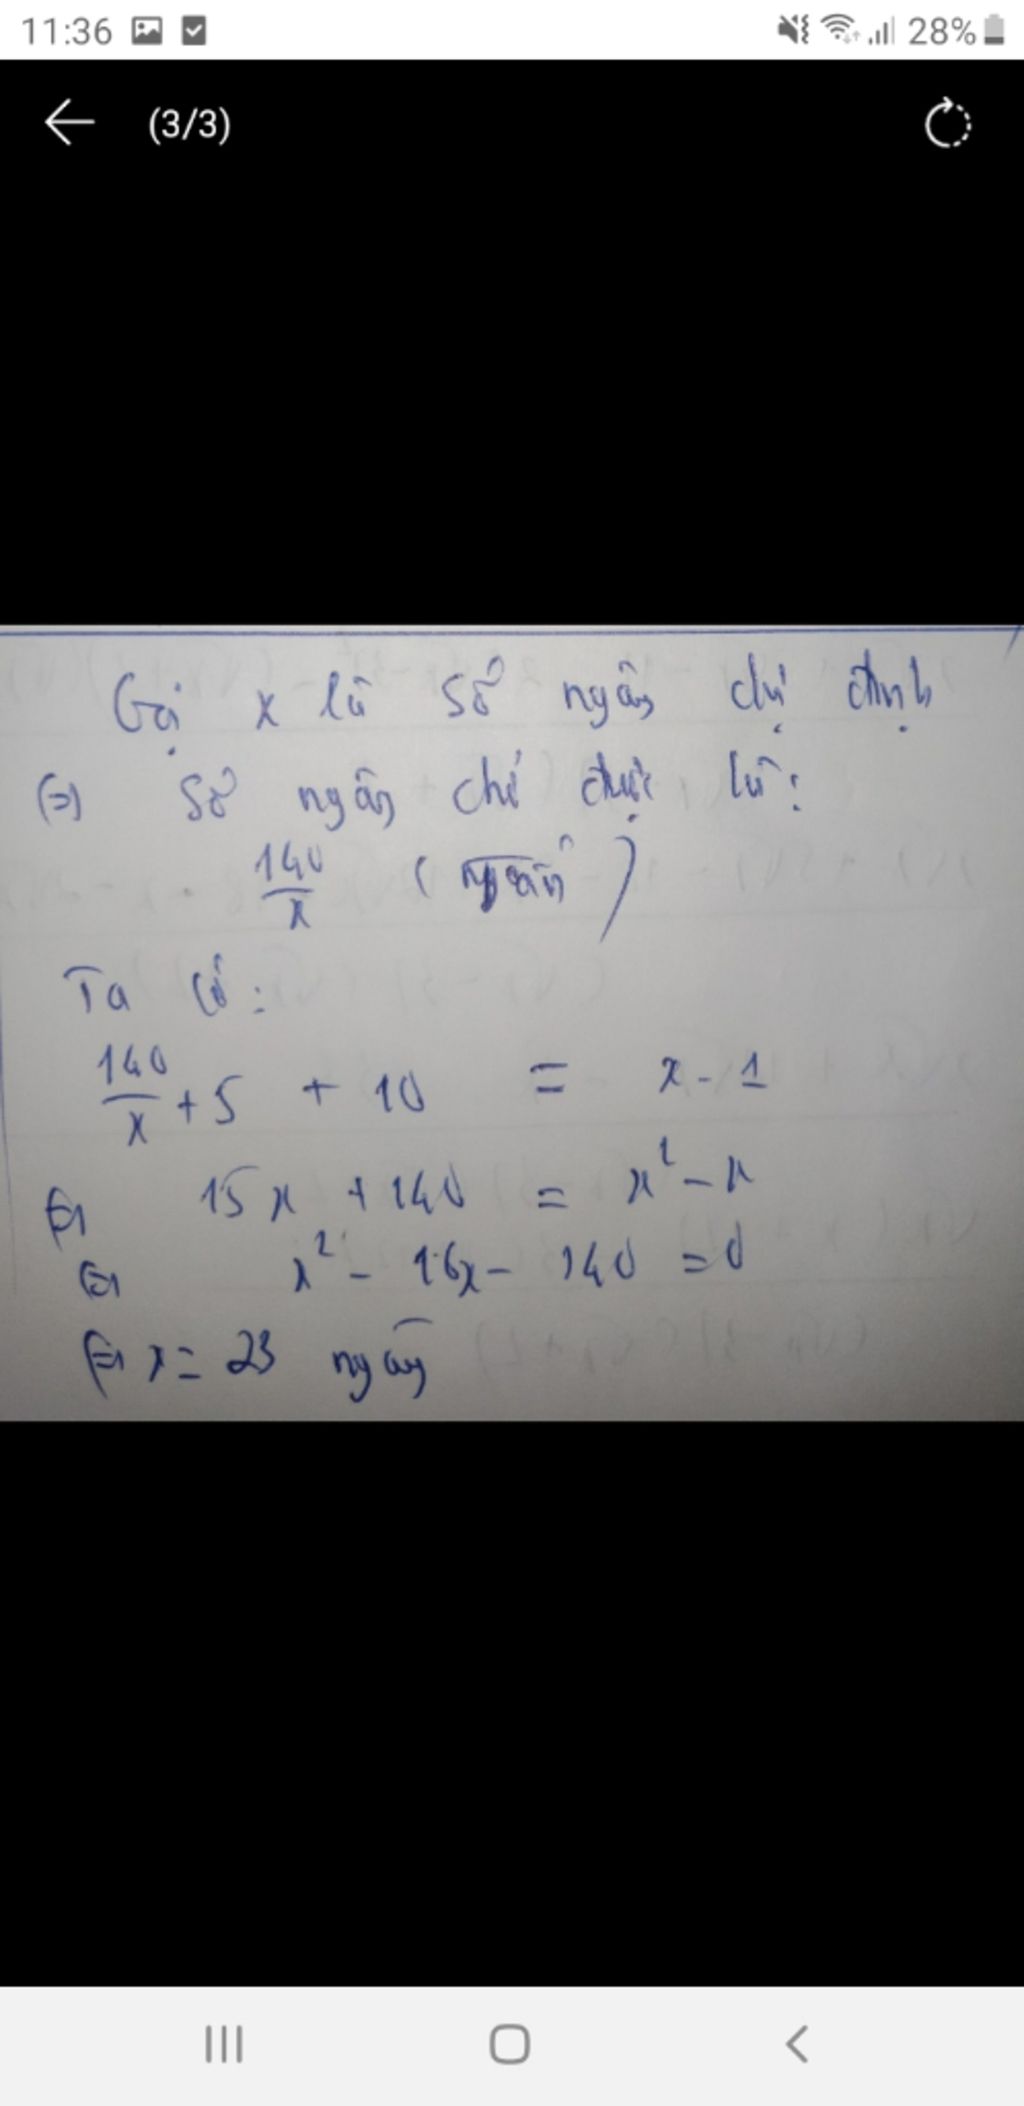 11:36 28%
(3/3)
Gọi x là số ngày dự định
(=) Số ngày chỉ được là:
140/x (ngày)
Ta có:
140/x + 5 + 10 = x - 1
(=) 15x + 140 = x² - x
(=) x² - 16x - 140 = 0
(=) x = 23 ngày